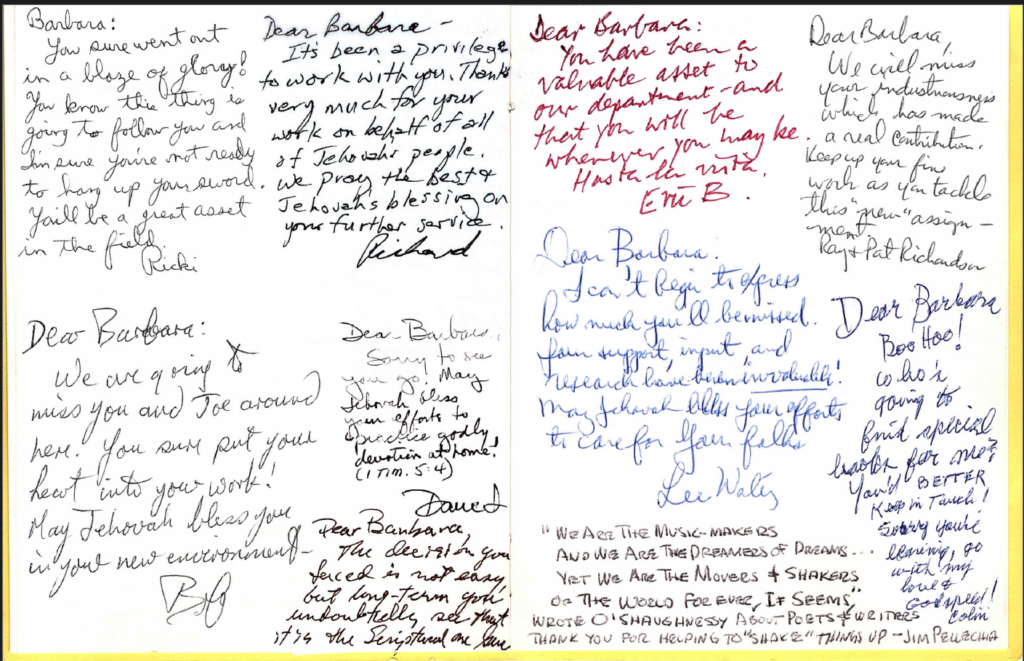 Barbara:
You sure went out
in a blaze of glory!
You know this thing is
going to follow you and
I'm sure you're not ready
to hang up your sword.
You'll be a great asset
in the field.
Ricki
Dear Barbara -
It's been a privilege
to work with you. Thanks
very much for your
work on behalf of all
of Jehovah's people.
We pray the best &
Jehovah's blessing on
your further service.
Richard
Dear Barbara:
We are going to
miss you and Joe around
here. You sure put your
heart into your work!
May Jehovah bless you
in your new environment-
Bob
Dear Barbara,
Sorry to see
you go! May
Jehovah bless
your efforts to
practice godly
devotion at home!
(1 Tim. 5:4)
David
Dear Barbara,
The decision you
faced is not easy
but long-term you'll
undoubtedly see that
it is the Scriptural one
Dear Barbara:
You have been a
valuable asset to
our department - and
that you will be
wherever you may be.
Hasta la vista.
Eric B.
Dear Barbara,
We will miss
your industriousness
which has made
a real contribution.
Keep up your fine
work as you tackle
this "new" assign-
ment
Ray & Pat Richardson
Dear Barbara.
I can't begin to express
how much you'll be missed.
Your support, input, and
research have been invaluable!
May Jehovah bless your efforts
to care for your folks
Lee Waters
Dear Barbara
Boo Hoo!
who's
going to
find special
books for me?
You'd BETTER
Keep in Touch!
Sorry you're
leaving, go
with my
love &
Godspeed!
Colin
"WE ARE THE MUSIC-MAKERS
AND WE ARE THE DREAMERS OF DREAMS...
YET WE ARE THE MOVERS & SHAKERS
OF THE WORLD FOREVER, IT SEEMS,"
WROTE O'SHAUGHNESSY ABOUT POETS & WRITERS
THANK YOU FOR HELPING TO "SHAKE" THINGS UP - JIM PELLECHIA